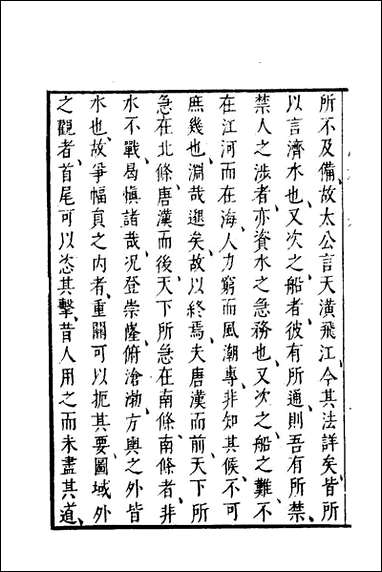 所不及備、故太公言天潢飛江、今其法詳矣、皆所
以言濟水也、又次之船者、彼有所通、則吾有所禁、
禁人之涉者、亦資水之急務也、又次之船之難、不
在江河而在海、人力窮而風潮專、非知其候、不可
庶幾也、淵哉邈矣、故以終焉、夫唐漢而前、天下所
急在北條、唐漢而後、天下所急在南條、南條者、非
水不戰、曷愼諸哉、况登崇隆、俯滄渤、方輿之外皆
水也、故爭幅員之內者、重關可以扼其要、圖域外
之觀者、首尾可以恣其擊、昔人用之而未盡其道、